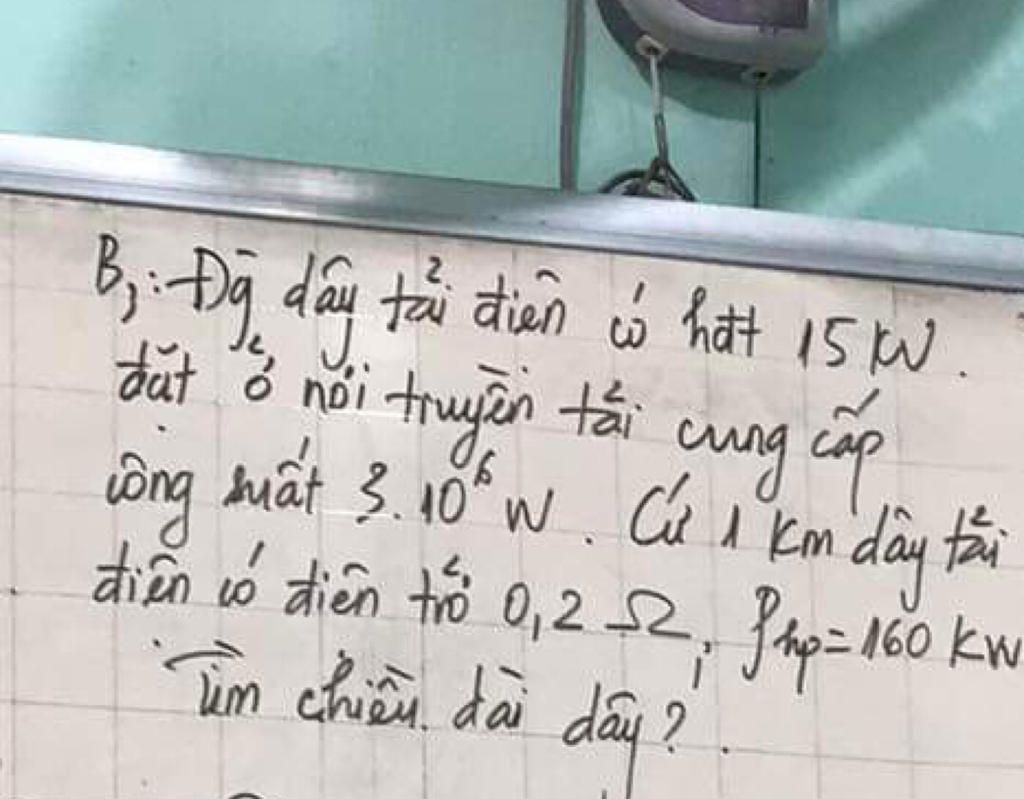 B3: Đg dây tải điện có hđt 15 kV.
đặt ở nơi truyền tải cung cấp
công suất 3.10⁶ W. Cứ 1 km dây tải
điện có điện trở 0,2 Ω, Php = 160 kW
Tìm chiều dài dây?